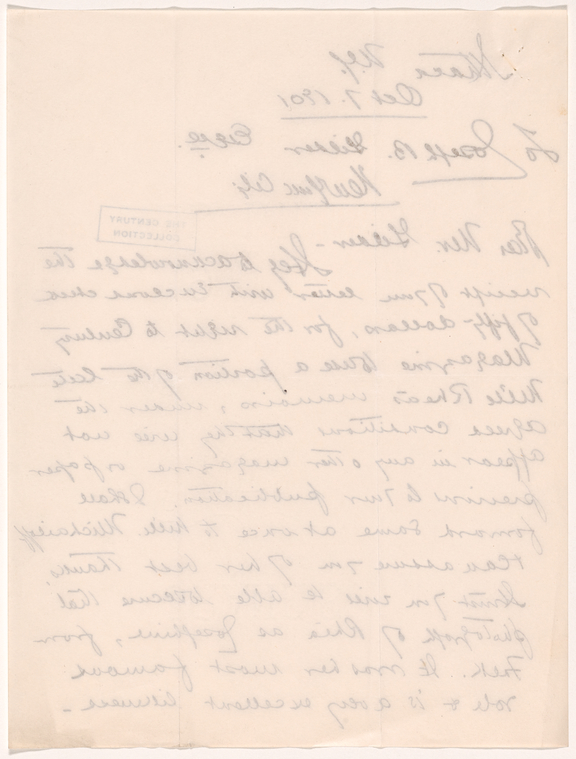 Ithaca N.Y.
Oct 7. 1901
To Joseph B. Gilder Esqre.
New York City
THE CENTURY
COLLECTION
Dear Mr. Gilder -
I beg to acknowledge the
receipt of your letter with enclosed check
of fifty dollars, for the right to Century
Magazine to use a portion of the late
Mlle Rhea's memoirs, under the
agreed conditions that they will not
appear in any other magazine or paper
previous to your publication I shall
forward same at once to Mlle.
& can assure you of her best thanks.
I trust you will be able to secure that
photograph of Rhea as Josephine, from
Falk. It was her most famous
role & is a very excellent likeness -